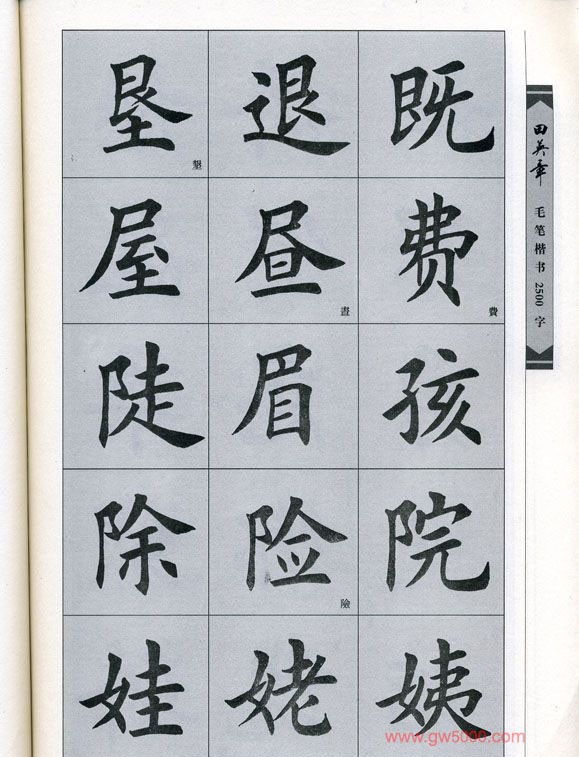 既 退 垦 墾
费 費 昼 晝 屋
孩 眉 陡
院 险 險 除
姨 姥 娃
田英章 毛笔楷书2500字
www.gw5000.com